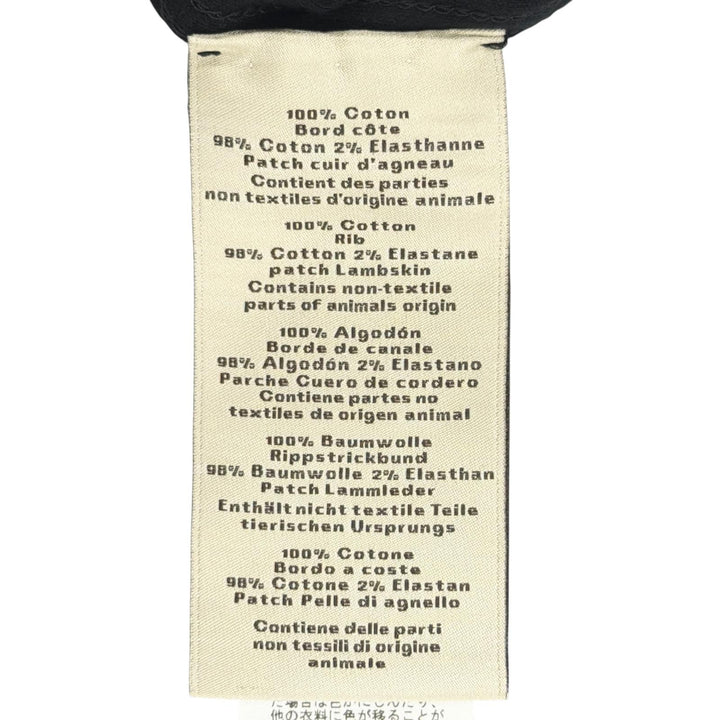 100% Coton
Bord côte
98% Coton 2% Elasthanne
Patch cuir d'agneau
Contient des parties
non textiles d'origine animale
100% Cotton
Rib
98% Cotton 2% Elastane
patch Lambskin
Contains non-textile
parts of animals origin
100% Algodón
Borde de canale
98% Algodón 2% Elastano
Parche Cuero de cordero
Contiene partes no
textiles de origen animal
100% Baumwolle
Rippstrickbund
98% Baumwolle 2% Elasthan
Patch Lammleder
Enthältnicht textile Teile
tierischen Ursprungs
100% Cotone
Bordo a coste
98% Cotone 2% Elastan
Patch Pelle di agnello
Contiene delle parti
non tessili di origine
animale
た場合は色がにじんだり、
他の衣料に色が移ることが